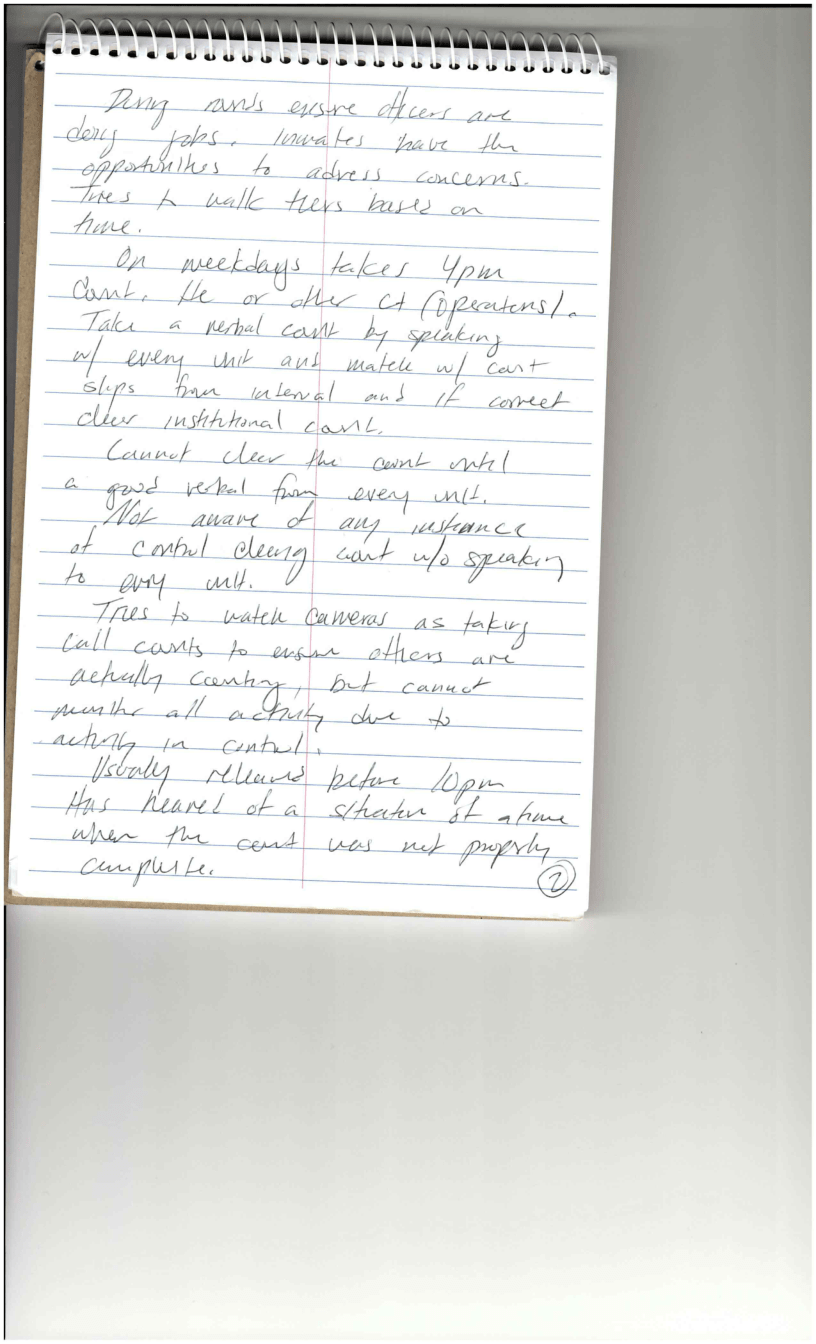 During rounds ensure officers are
doing jobs. Inmates have the
opportunities to adress concerns.
Tries to walk tiers based on
time.
On weekdays takes 4pm
Count. He or other Lt (Operations).
Take a verbal count by speaking
w/ every unit and match w/ count
slips from internal and if correct
clear institutional count.
Cannot clear the count until
a good verbal from every unit.
Not aware of any instance
of control clearing count w/o speaking
to every unit.
Tries to watch cameras as taking
call counts to ensure officers are
actually counting, but cannot
monitor all activity due to
activity in control.
Usually released before 10pm
Has heared of a situation of a time
when the count was not properly
complete.
2